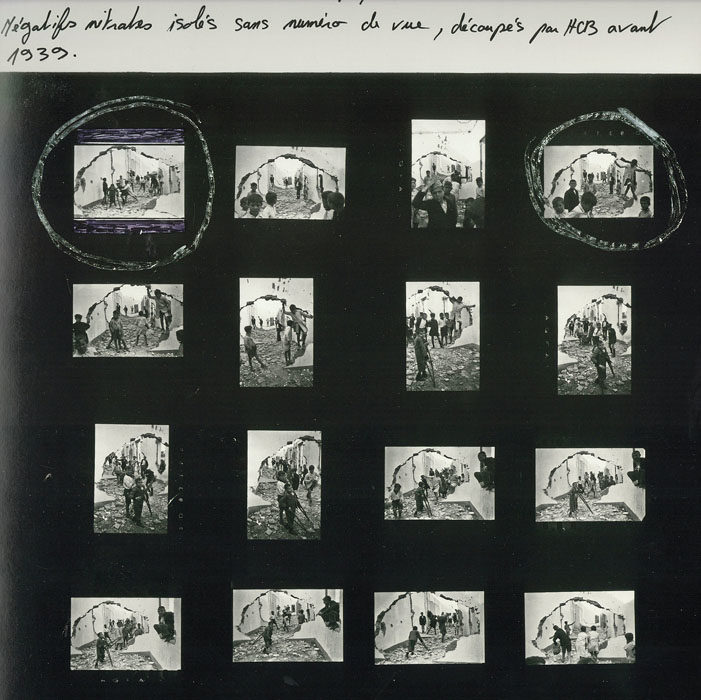 Négatifs nitrates isolés sans numéro de vue, découpés par HCB avant
1939.